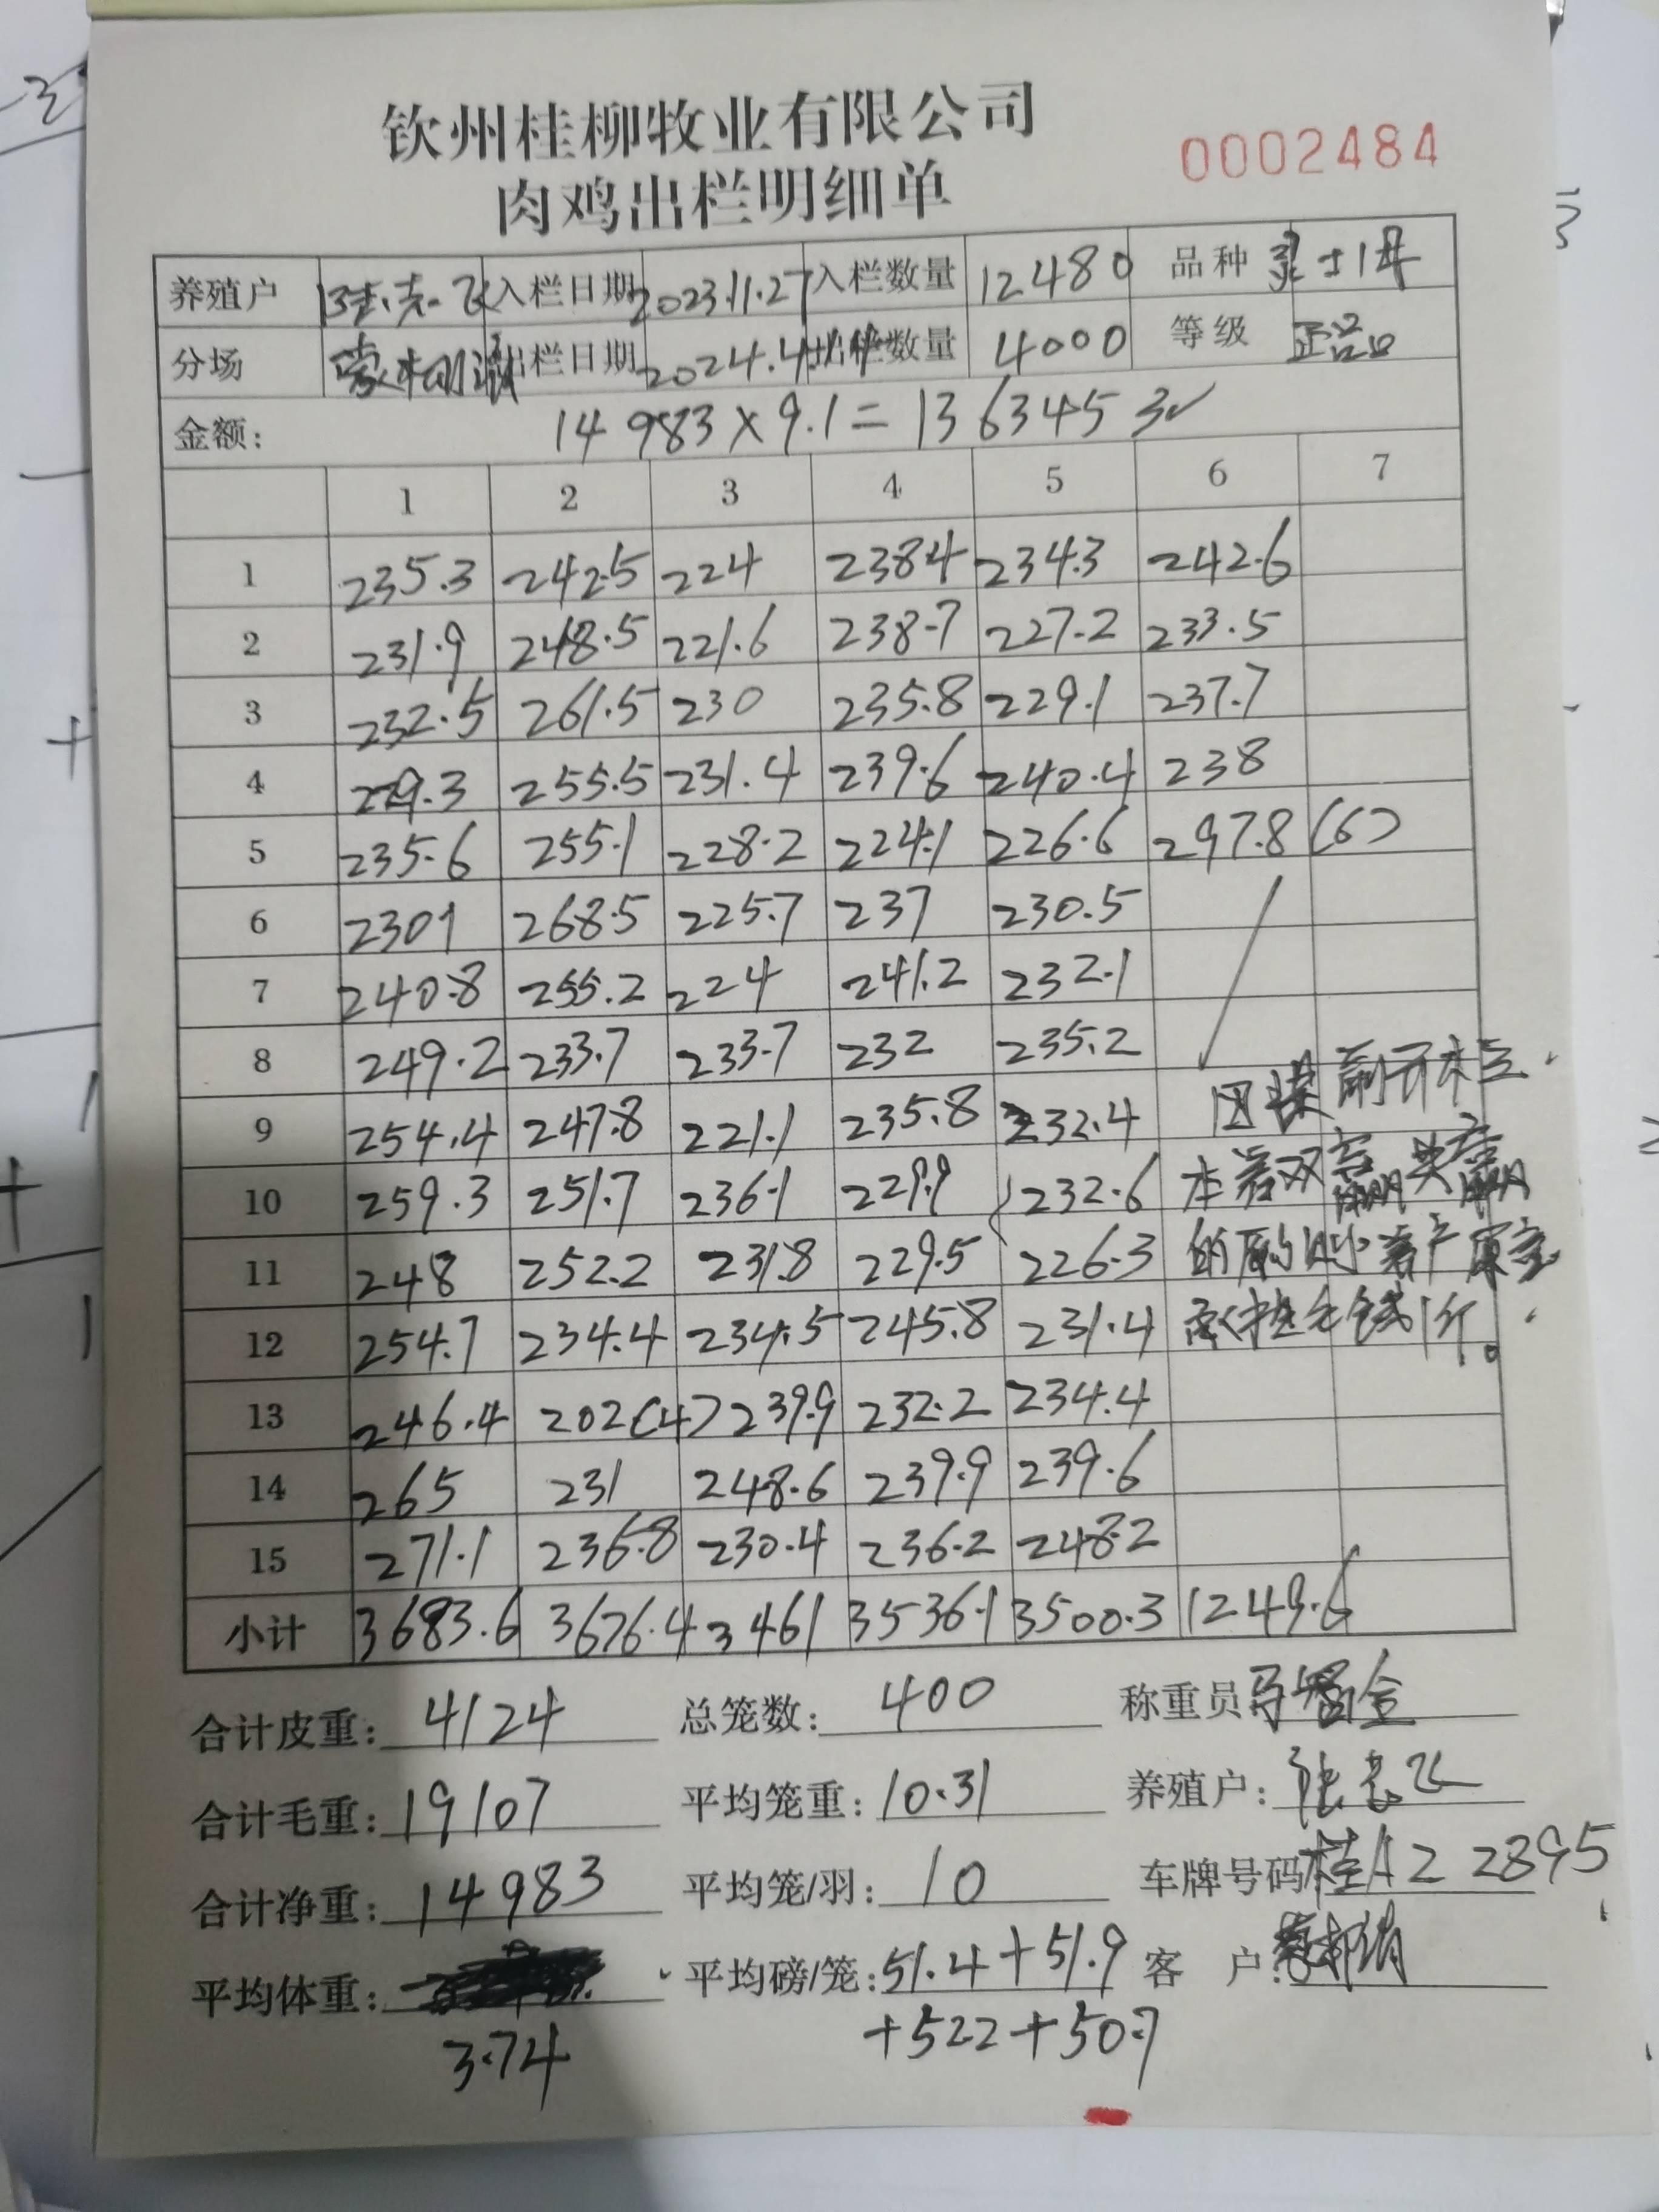 钦州桂柳牧业有限公司
肉鸡出栏明细单
0002484
养殖户 入栏日期 2023.11.27 入栏数量 12480 品种 灵土1母
分场 出栏日期 2024.4.14 出栏数量 4000 等级 正品
金额: 14983×9.1=1363453
1 2 3 4 5 6 7
1 235.3 242.5 224 238.4 234.3 242.6
2 231.9 248.5 221.6 238.7 227.2 233.5
3 232.5 261.5 230 235.8 229.1 237.7
4 229.3 255.5 231.4 239.6 240.4 238
5 235.6 255.1 228.2 224.1 226.6 297.8 (6)
6 230.1 268.5 225.7 237 230.5
7 240.8 255.2 224 241.2 232.1
8 249.2 233.7 233.7 232 235.2
9 254.4 247.8 221.1 235.8 232.4
10 259.3 251.7 236.1 229.9 232.6 本着双赢共赢
11 248 252.2 231.8 229.5 226.3
12 254.7 234.4 234.5 245.8 231.4
13 246.4 202(4) 239.9 232.2 234.4
14 265 231 248.6 239.9 239.6
15 271.1 236.8 230.4 236.2 248.2
小计 3683.6 3676.4 3461 3536.1 3500.3 1249.6
合计皮重: 4124 总笼数: 400 称重员
合计毛重: 19107 平均笼重: 10.31 养殖户: 张志飞
合计净重: 14983 平均笼/羽: 10 车牌号码 桂AZ2895
平均体重: 平均磅/笼: 51.4+51.9 客户:
3.74 +52.2+50.7